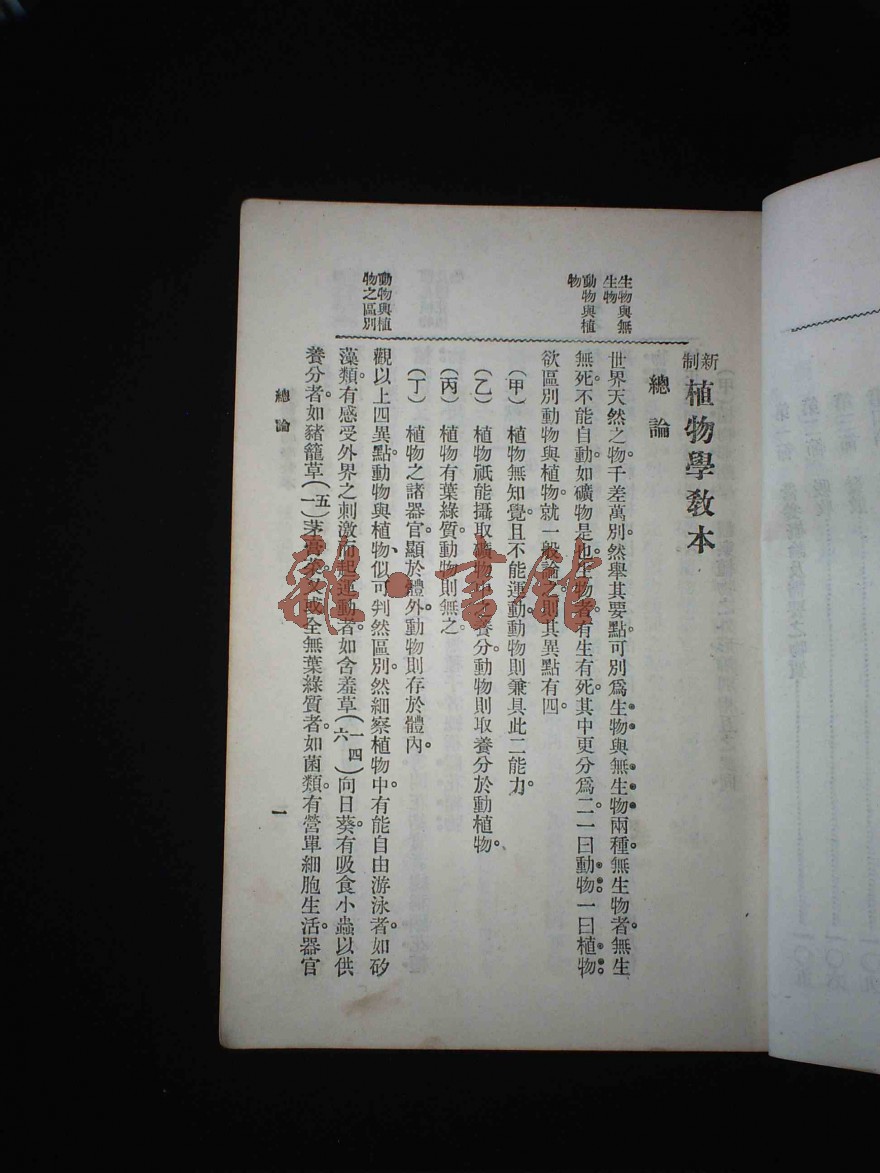 新制
植物學教本
總論
生物與無
生物
動物與植
物
世界天然之物。千差萬別。然舉其要點。可別爲生物與無生物兩種。無生物者。無生
無死。不能自動。如礦物是也。生物者。有生有死。其中更分爲二。一曰動物。一曰植物。
欲區別動物與植物。就一般論。則其異點有四。
(甲) 植物無知覺。且不能運動。動物則兼具此二能力。
(乙) 植物祇能攝取礦物中之養分。動物則取養分於動植物。
(丙) 植物有葉綠質。動物則無之。
(丁) 植物之諸器官。顯於體外。動物則存於體內。
動物與植
物之區別
觀以上四異點。動物與植物、似可判然區別。然細察植物中。有能自由游泳者。如矽
藻類。有感受外界之刺激而起運動者。如含羞草(一四六)向日葵。有吸食小蟲以供
養分者。如豬籠草(一五)茅膏菜。又或全無葉綠質者。如菌類。有營單細胞生活。器官
總論
一
雜·書館